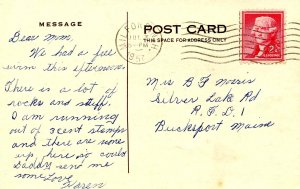 MESSAGE
Dear Mom,
We had a
swim this afternoon.
There is a lot of
rocks and stuff.
I am running
out of 3 cent stamps
and there are none
up here so could
Daddy send me
some Love
Karen
POST CARD
THIS SPACE FOR ADDRESS ONLY
MILFORD
PM
1957
2¢
Mrs B F
Silver Lake Rd
R.F.D 1
Bucksport Maine